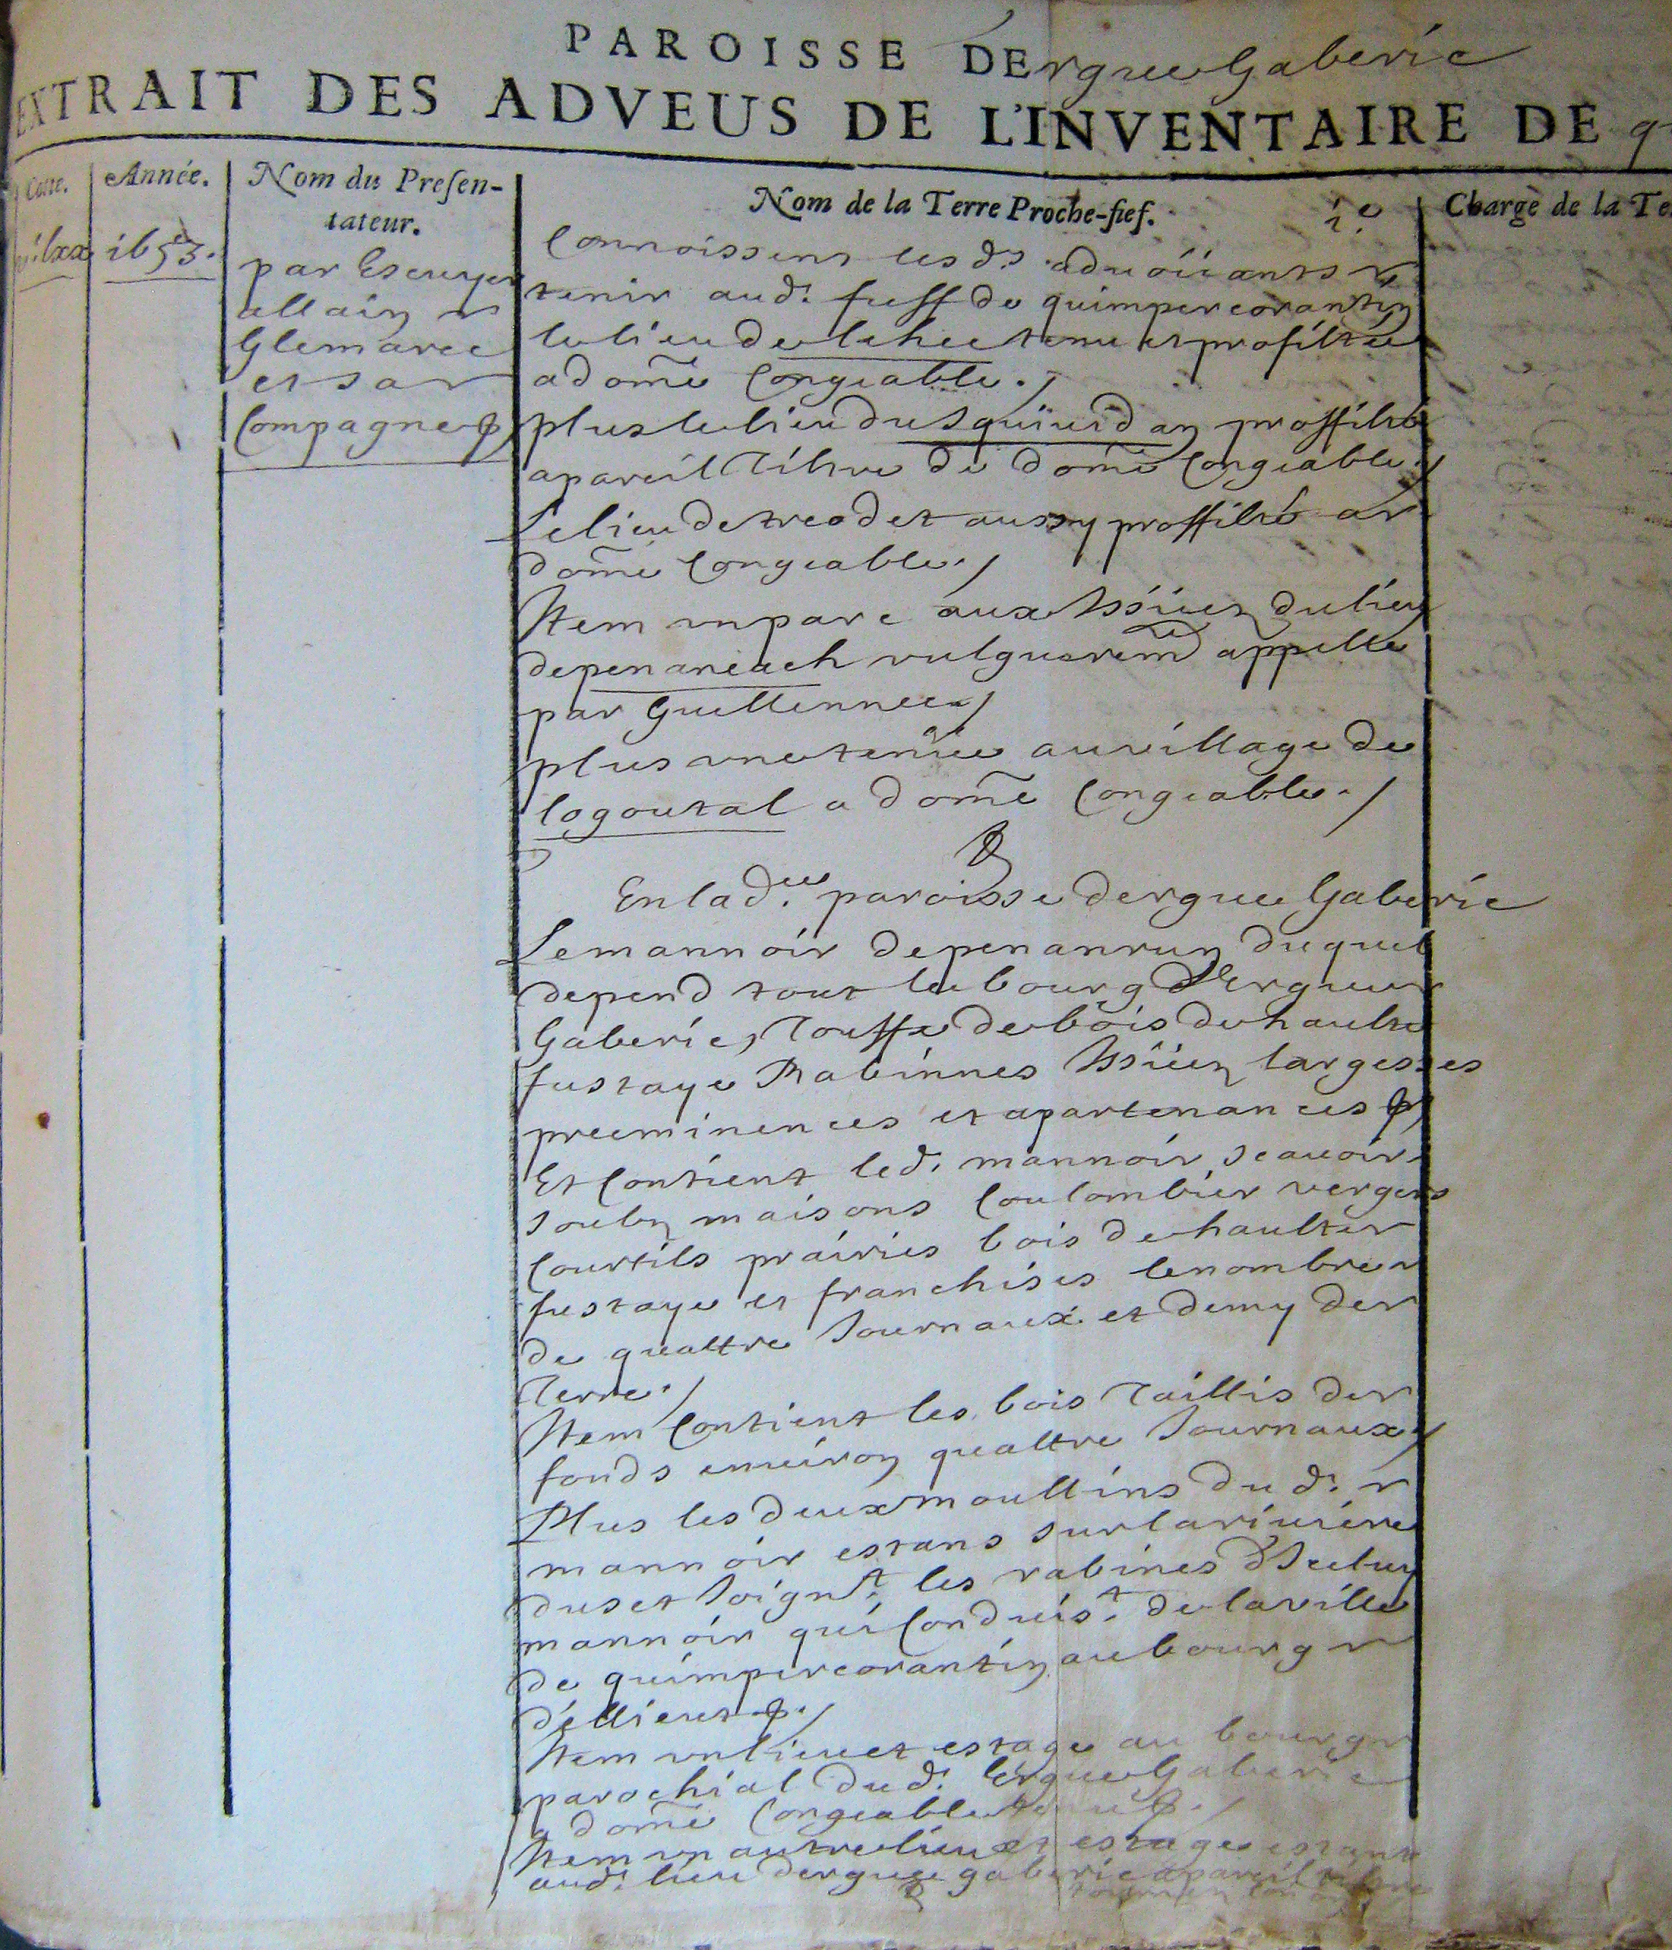 PAROISSE DErgue Gaberic
EXTRAIT DES ADVEUS DE L'INVENTAIRE DE q
Cotte.
Année.
Nom du Presen-
tateur.
Nom de la Terre Proche-fief.
Charge de la Te
1653.
par Escuyer
allain
Glemarec
et sa
Compagne
Connoissent les d.ts advoüants
tenir aud. fieff de quimpercorantin
le lieu de lehec tenu et profitté
a dom̃e Congeable./
plus le lieu du squiuid an proffitté
a pareil Tiltre de dom̃e Congeable./
Le lieu de treodet aussy proffitté a
dom̃e Congeable./
Item un parc aux Issües du lieu
de penaneach vulguerem̃ appellé
par Guellennec/
plus une tenüe au village de
logoutal a dom̃e Congeable./
En lad.ee paroisse dergue Gaberic
Le mannoir de penanrun duquel
depend tout le bourg d'Ergue
Gaberic, Touffe de bois de haulte
fustaye Rabinnes Issües largesses
preeminences et apartenances
Et Contient led. mannoir scauoir
soubz maisons Coulombier vergers
Courtils prairies bois de haulte
fustaye et franchises le nombre
de quattre Journaux et demy de
Terre./
Item Contient les bois Taillis de
fonds enuiron quattre Journaux/
Plus les deux moullins dud.
mannoir estans sur la riuiére
du Jet Joign.t les rabines d'Iceluy
mannoir qui Conduis.t de la ville
de quimpercorantin au bourg
d'ellient./
Item un lieu et estage au bourg
parochial dud. Ergue Gaberic
a dom̃e Congeable
Item un autre lieu et estage estant
aud. lieu dergue gaberic a pareil tiltre